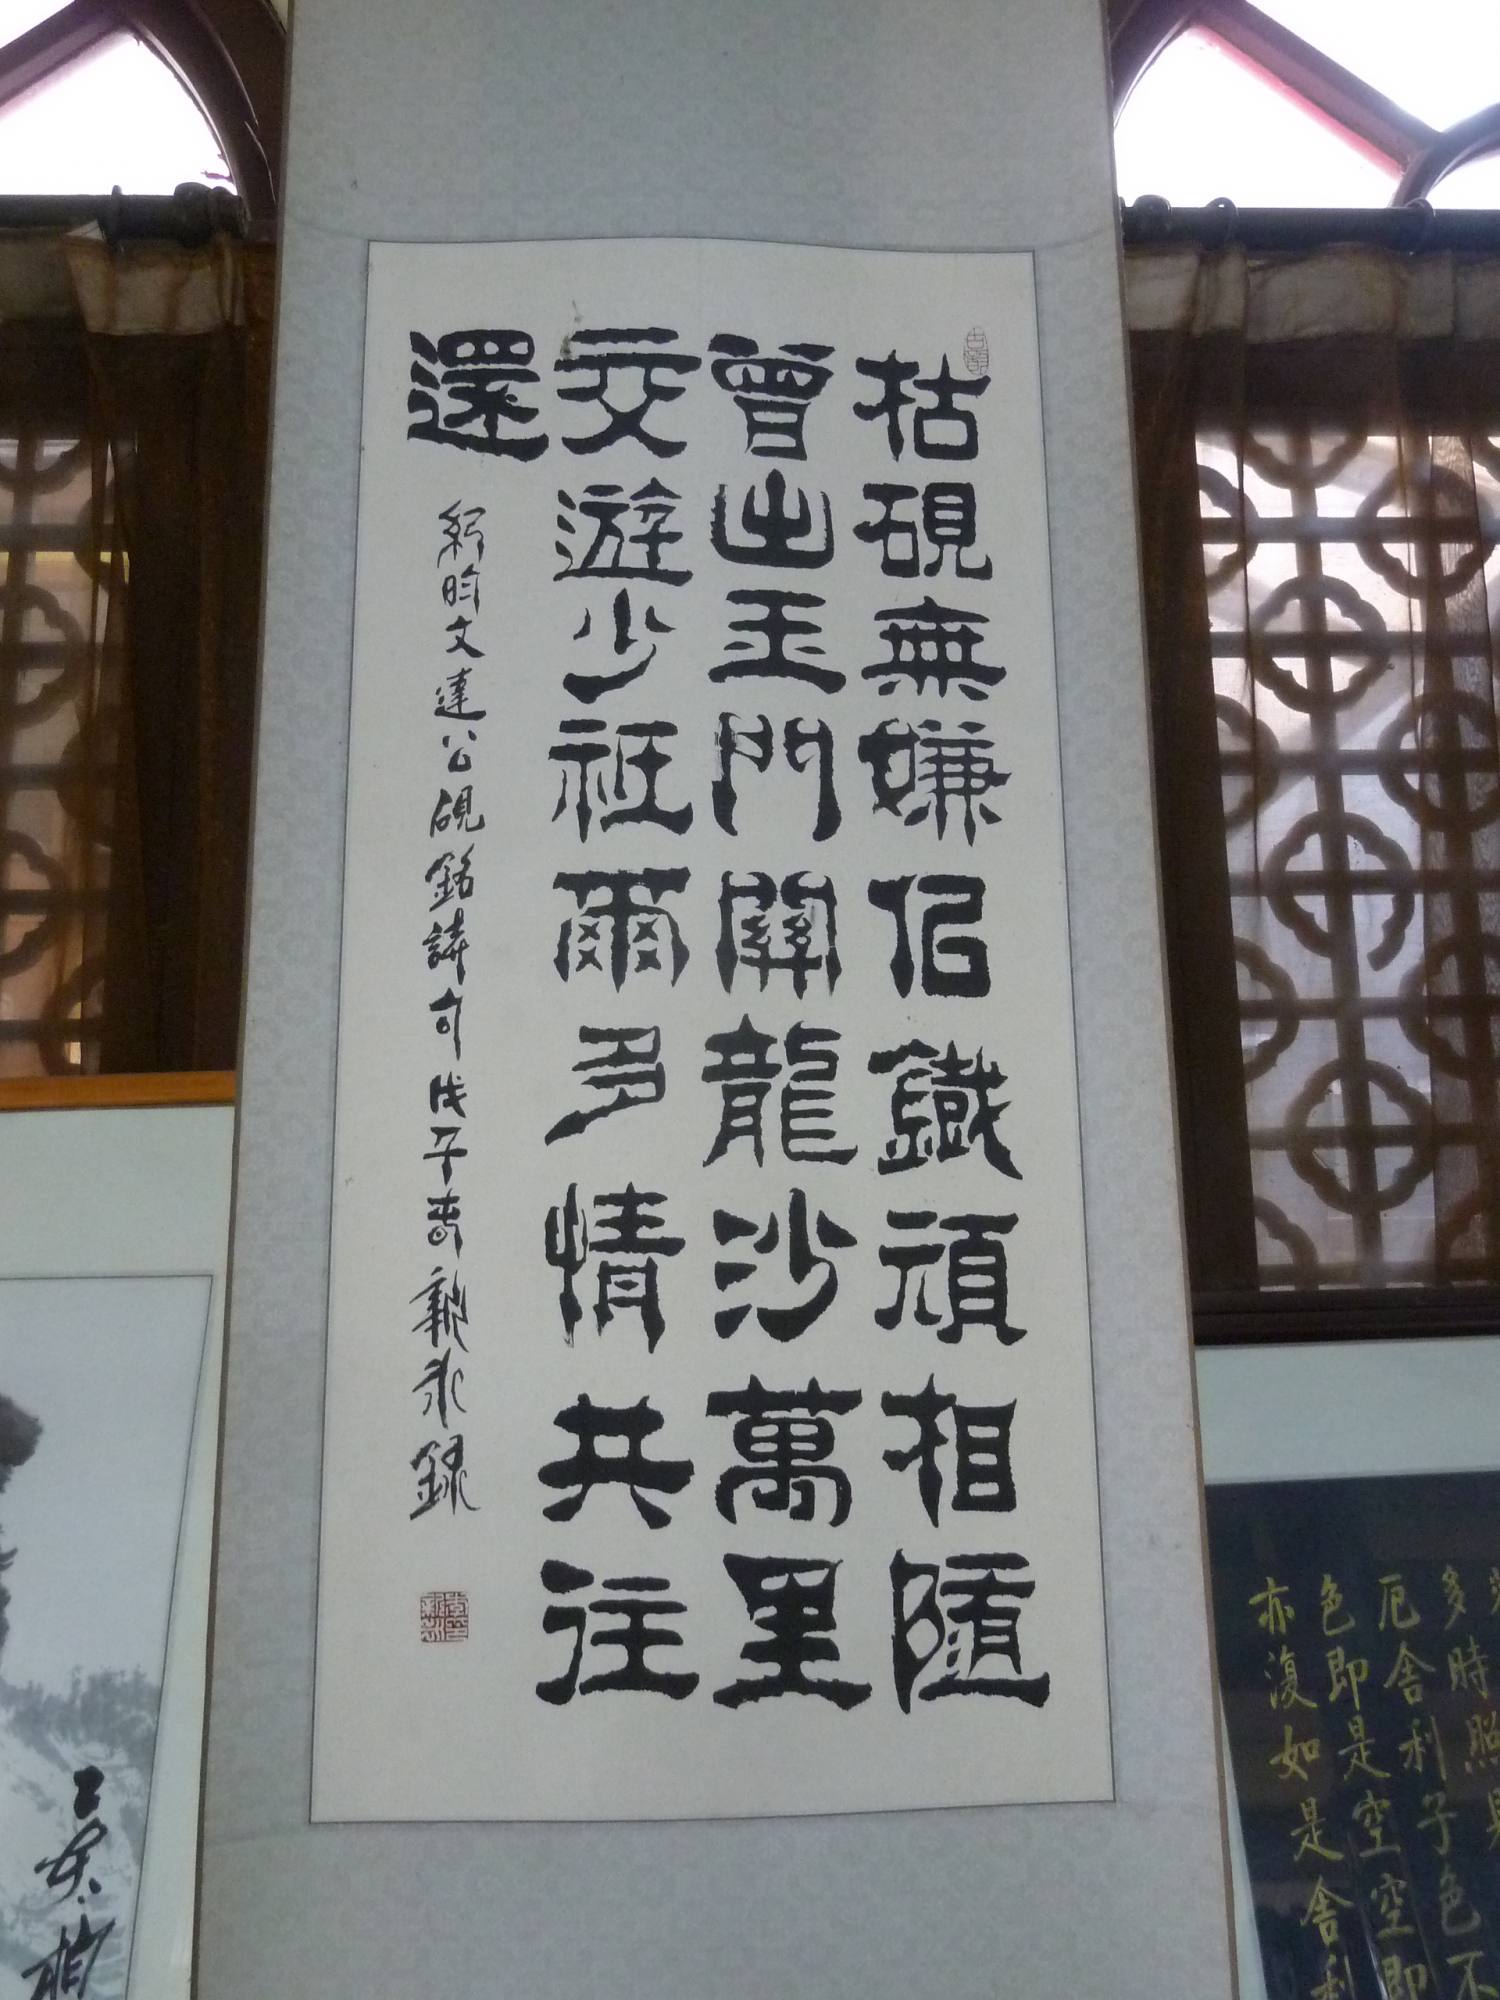 枯硯無嫌似鐵頑相隨
曾出玉門關龍沙萬里
交遊少祗爾多情共往
還
紀昀文達公硯銘詩句戊子春新永錄
多時照見
厄舍利子色不
色即是空空即
亦復如是舍利